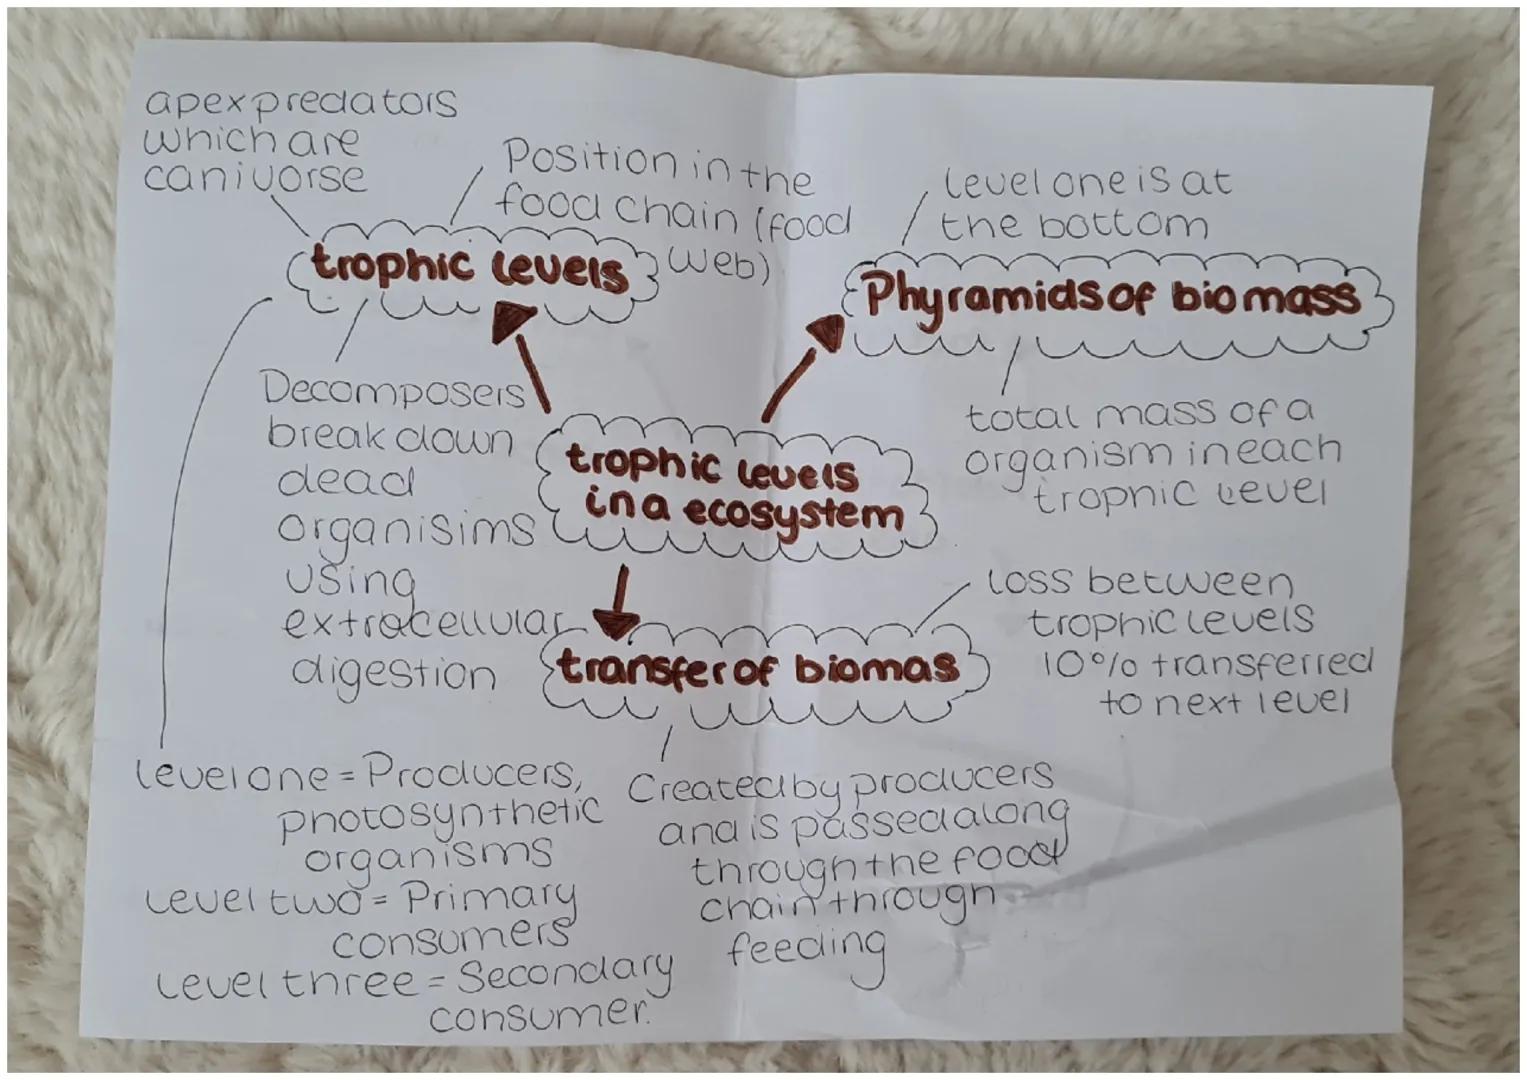 apex predators
which are
canivorse
Position in the
food chain (food
web)
trophic levels
Decomposers
break down
dead
organisims
using
extracellular
digestion
level one = Producers,
photosynthetic
organisms
Level two = Primary
consumers
Level three = Secondary
consumer.
level one is at
the bottom
Phyramids of biomass
total mass of a
organism in each
trophic level
trophic levels
in a ecosystem
transfer of biomas
loss between
trophic levels
10% transferred
to next level
Created by producers
and is passed along
through the food
chain through
feeding